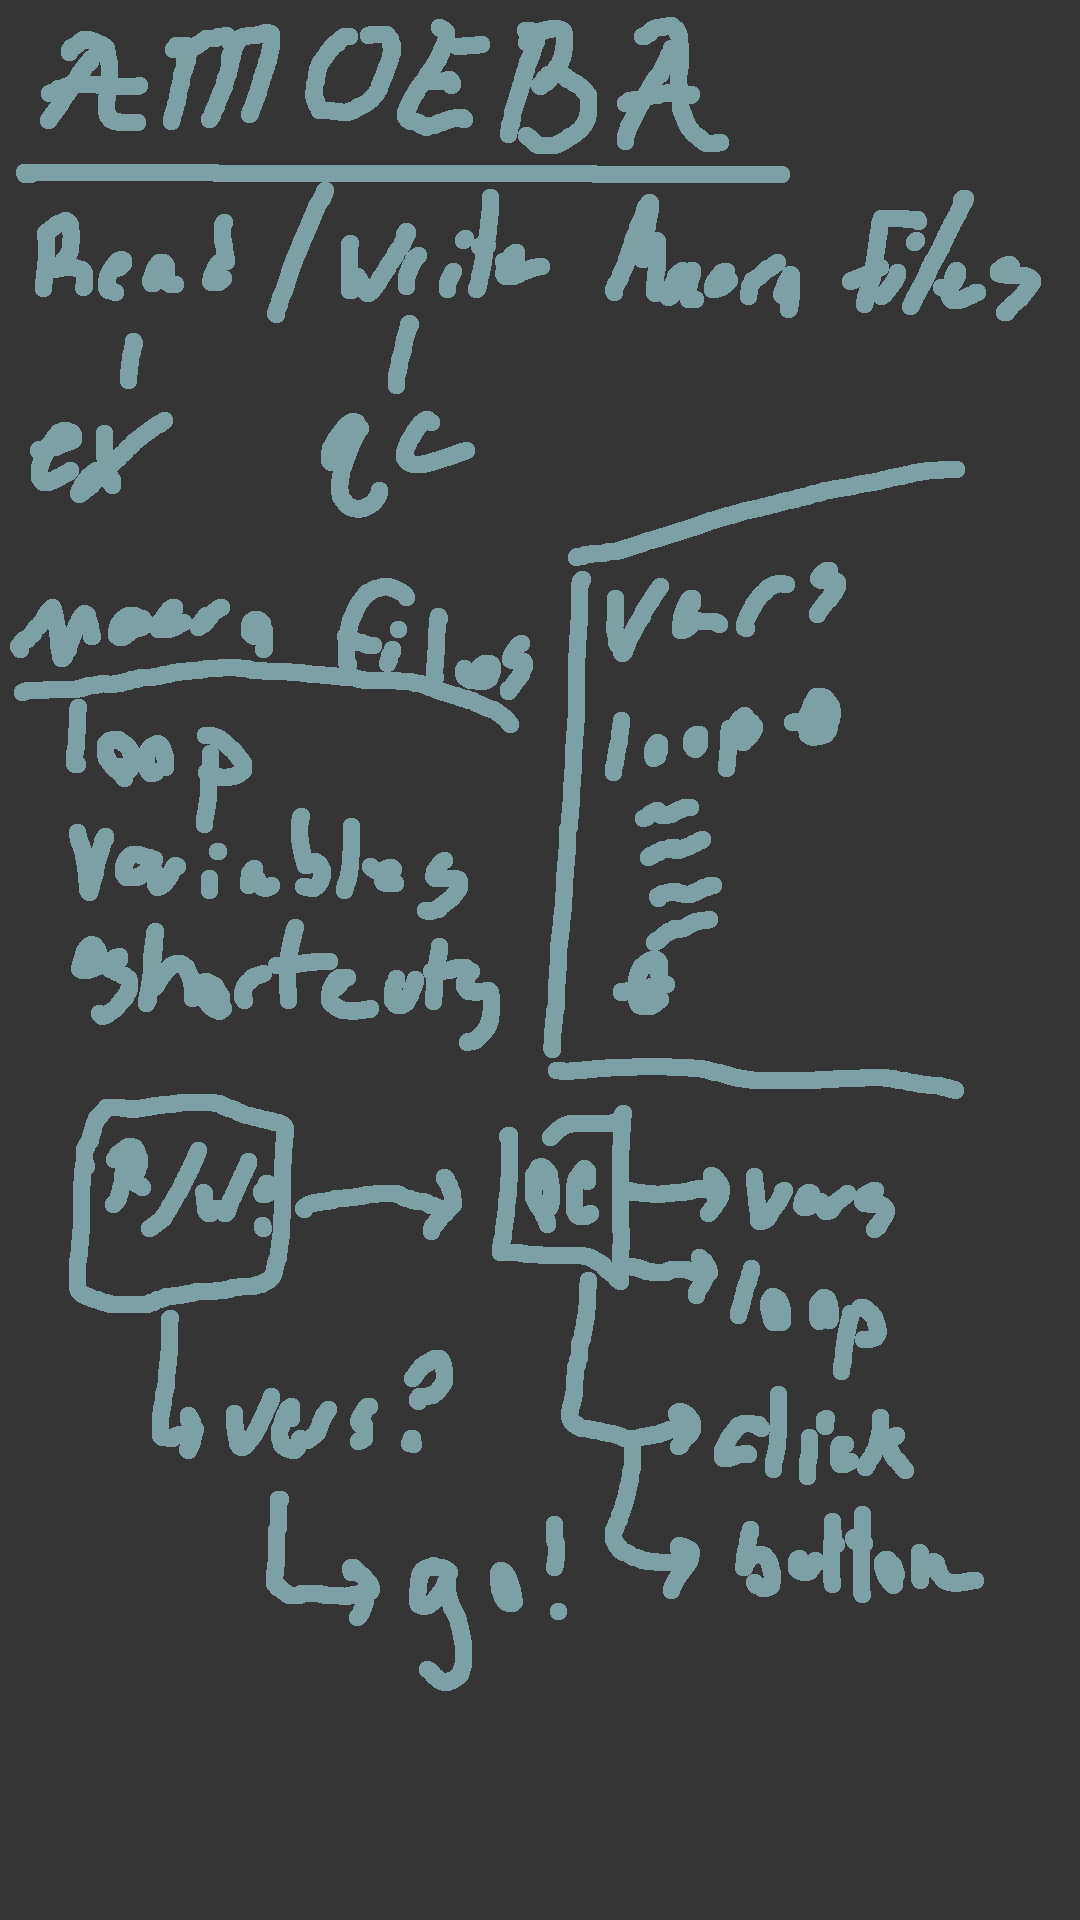 AMOEBA
Read / Write Macro Files
Ex qc
Macro Files
loop
Variables
Shortcuts
Vars
loop
R/W:
QC
Vars
loop
click
button
vars?
go!